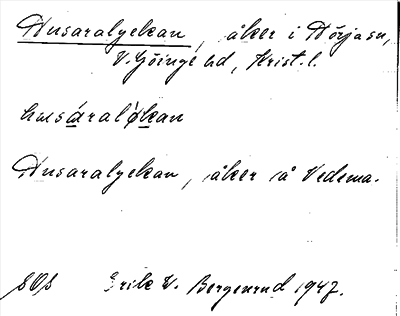 Husaralyckan, åker i Nörja sn,
V. Göinge hd, Krist. l.
husáralýkan
Husaralyckan, åker å Vedema.
SOs Erik W. Bergenrud 1947.